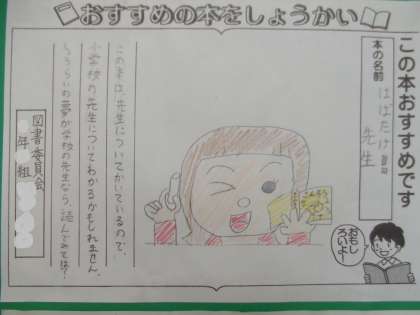 おすすめの本をしょうかい
この本おすすめです
本の名前
はばたけ
先生
おもしろいよ!
この本は、先生についてかいているので、
小学校の先生についてわかるかもしれません。
しょうらいの夢が学校の先生なら、読んでみては?
図書委員会
年 組